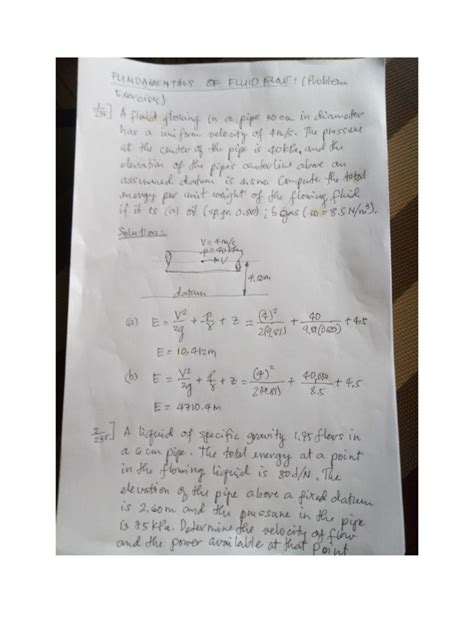 FUNDAMENTALS OF FLUID FLOW: (Problem
Exercises)
A fluid flowing in a pipe in diameter
has a uniform velocity of 4 m/s. The pressure
at the center of the pipe is 40kPa, and the
elevation of the pipes centerline above an
assumed datum is Compute the total
energy per unit weight of the flowing fluid
if it is (a) oil (sp.gr. 0.80); b gas (w = 8.5 N/m³).
Solution:
V = 4 m/s
V
4.50m
datum
(a) E = V²/2g + P/γ + Z = (4)²/2(9.81) + 40/9.81(0.80) + 4.5
E = 10.412m
(b) E = V²/2g + P/γ + Z = (4)²/2(9.81) + 40,000/8.5 + 4.5
E = 4710.4m
A liquid of specific gravity 1.75 flows in
a 6 cm pipe. The total energy at a point
in the flowing liquid is 80 J/N. The
elevation of the pipe above a fixed datum
is 2.60 m and the pressure in the pipe
is 75 kPa. Determine the velocity of flow
and the power available at that point